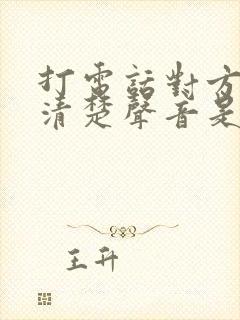 打電話對方
清楚聲音是
王升